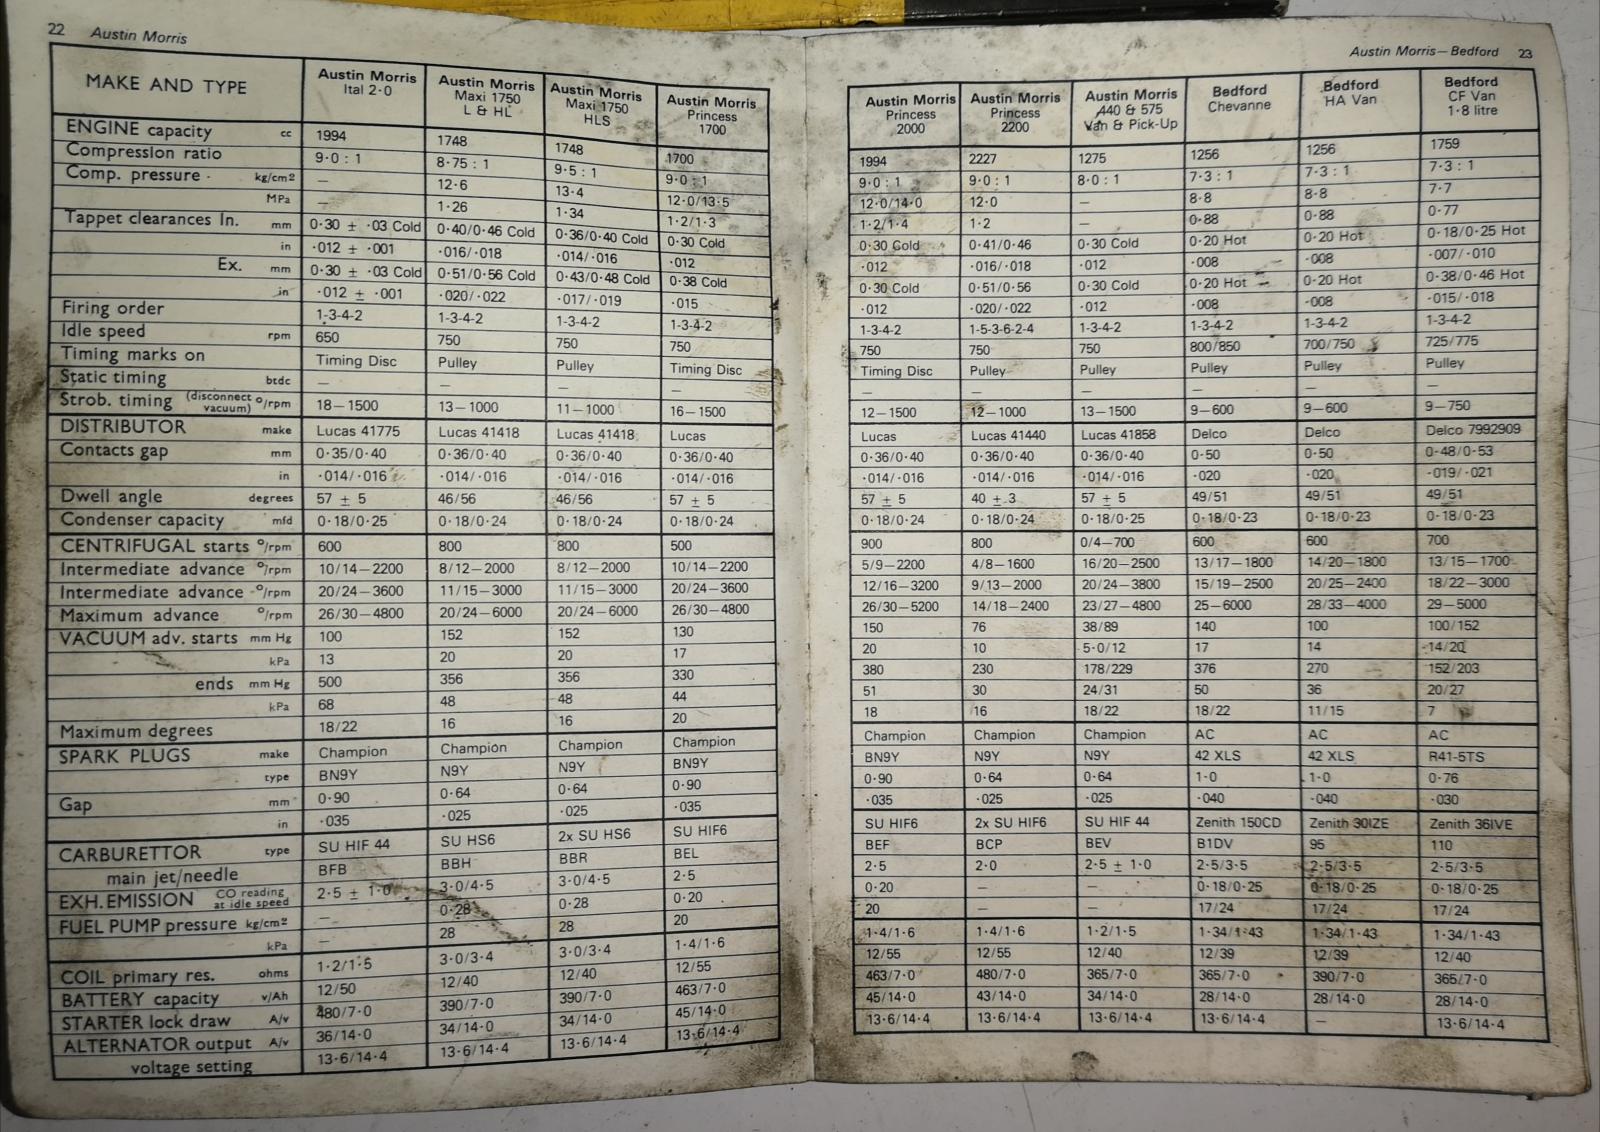 22 Austin Morris
MAKE AND TYPE | Austin Morris Ital 2·0 | Austin Morris Maxi 1750 L & HL | Austin Morris Maxi 1750 HLS | Austin Morris Princess 1700
ENGINE capacity cc | 1994 | 1748 | 1748 | 1700
Compression ratio | 9·0 : 1 | 8·75 : 1 | 9·5 : 1 | 9·0 : 1
Comp. pressure kg/cm² | — | 12·6 | 13·4 | 12·0/13·5
MPa | — | 1·26 | 1·34 | 1·2/1·3
Tappet clearances In. mm | 0·30 ± ·03 Cold | 0·40/0·46 Cold | 0·36/0·40 Cold | 0·30 Cold
in | ·012 ± ·001 | ·016/·018 | ·014/·016 | ·012
Ex. mm | 0·30 ± ·03 Cold | 0·51/0·56 Cold | 0·43/0·48 Cold | 0·38 Cold
in | ·012 ± ·001 | ·020/·022 | ·017/·019 | ·015
Firing order | 1-3-4-2 | 1-3-4-2 | 1-3-4-2 | 1-3-4-2
Idle speed rpm | 650 | 750 | 750 | 750
Timing marks on | Timing Disc | Pulley | Pulley | Timing Disc
Static timing btdc | — | — | — | —
Strob. timing (disconnect vacuum) °/rpm | 18—1500 | 13—1000 | 11—1000 | 16—1500
DISTRIBUTOR make | Lucas 41775 | Lucas 41418 | Lucas 41418 | Lucas
Contacts gap mm | 0·35/0·40 | 0·36/0·40 | 0·36/0·40 | 0·36/0·40
in | ·014/·016 | ·014/·016 | ·014/·016 | ·014/·016
Dwell angle degrees | 57 ± 5 | 46/56 | 46/56 | 57 ± 5
Condenser capacity mfd | 0·18/0·25 | 0·18/0·24 | 0·18/0·24 | 0·18/0·24
CENTRIFUGAL starts °/rpm | 600 | 800 | 800 | 500
Intermediate advance °/rpm | 10/14—2200 | 8/12—2000 | 8/12—2000 | 10/14—2200
Intermediate advance °/rpm | 20/24—3600 | 11/15—3000 | 11/15—3000 | 20/24—3600
Maximum advance °/rpm | 26/30—4800 | 20/24—6000 | 20/24—6000 | 26/30—4800
VACUUM adv. starts mm Hg | 100 | 152 | 152 | 130
kPa | 13 | 20 | 20 | 17
ends mm Hg | 500 | 356 | 356 | 330
kPa | 68 | 48 | 48 | 44
Maximum degrees | 18/22 | 16 | 16 | 20
SPARK PLUGS make | Champion | Champion | Champion | Champion
type | BN9Y | N9Y | N9Y | BN9Y
Gap mm | 0·90 | 0·64 | 0·64 | 0·90
in | ·035 | ·025 | ·025 | ·035
CARBURETTOR type | SU HIF 44 | SU HS6 | 2x SU HS6 | SU HIF6
main jet/needle | BFB | BBH | BBR | BEL
EXH. EMISSION CO reading at idle speed | 2·5 ± 1·0 | 3·0/4·5 | 3·0/4·5 | 2·5
FUEL PUMP pressure kg/cm² | — | 0·28 | 0·28 | 0·20
kPa | — | 28 | 28 | 20
COIL primary res. ohms | 1·2/1·5 | 3·0/3·4 | 3·0/3·4 | 1·4/1·6
BATTERY capacity v/Ah | 12/50 | 12/40 | 12/40 | 12/55
STARTER lock draw A/v | 480/7·0 | 390/7·0 | 390/7·0 | 463/7·0
ALTERNATOR output A/v | 36/14·0 | 34/14·0 | 34/14·0 | 45/14·0
voltage setting | 13·6/14·4 | 13·6/14·4 | 13·6/14·4 | 13·6/14·4
Austin Morris—Bedford 23
Austin Morris Princess 2000 | Austin Morris Princess 2200 | Austin Morris 440 & 575 Van & Pick-Up | Bedford Chevanne | Bedford HA Van | Bedford CF Van 1·8 litre
1994 | 2227 | 1275 | 1256 | 1256 | 1759
9·0 : 1 | 9·0 : 1 | 8·0 : 1 | 7·3 : 1 | 7·3 : 1 | 7·3 : 1
12·0/14·0 | 12·0 | — | 8·8 | 8·8 | 7·7
1·2/1·4 | 1·2 | — | 0·88 | 0·88 | 0·77
0·30 Cold | 0·41/0·46 | 0·30 Cold | 0·20 Hot | 0·20 Hot | 0·18/0·25 Hot
·012 | ·016/·018 | ·012 | ·008 | ·008 | ·007/·010
0·30 Cold | 0·51/0·56 | 0·30 Cold | 0·20 Hot | 0·20 Hot | 0·38/0·46 Hot
·012 | ·020/·022 | ·012 | ·008 | ·008 | ·015/·018
1-3-4-2 | 1-5-3-6-2-4 | 1-3-4-2 | 1-3-4-2 | 1-3-4-2 | 1-3-4-2
750 | 750 | 750 | 800/850 | 700/750 | 725/775
Timing Disc | Pulley | Pulley | Pulley | Pulley | Pulley
— | — | — | — | — | —
12—1500 | 12—1000 | 13—1500 | 9—600 | 9—600 | 9—750
Lucas | Lucas 41440 | Lucas 41858 | Delco | Delco | Delco 7992909
0·36/0·40 | 0·36/0·40 | 0·36/0·40 | 0·50 | 0·50 | 0·48/0·53
·014/·016 | ·014/·016 | ·014/·016 | ·020 | ·020 | ·019/·021
57 ± 5 | 40 ± 3 | 57 ± 5 | 49/51 | 49/51 | 49/51
0·18/0·24 | 0·18/0·24 | 0·18/0·25 | 0·18/0·23 | 0·18/0·23 | 0·18/0·23
900 | 800 | 0/4—700 | 600 | 600 | 700
5/9—2200 | 4/8—1600 | 16/20—2500 | 13/17—1800 | 14/20—1800 | 13/15—1700
12/16—3200 | 9/13—2000 | 20/24—3800 | 15/19—2500 | 20/25—2400 | 18/22—3000
26/30—5200 | 14/18—2400 | 23/27—4800 | 25—6000 | 28/33—4000 | 29—5000
150 | 76 | 38/89 | 140 | 100 | 100/152
20 | 10 | 5·0/12 | 17 | 14 | 14/20
380 | 230 | 178/229 | 376 | 270 | 152/203
51 | 30 | 24/31 | 50 | 36 | 20/27
18 | 16 | 18/22 | 18/22 | 11/15 | 7
Champion | Champion | Champion | AC | AC | AC
BN9Y | N9Y | N9Y | 42 XLS | 42 XLS | R41-5TS
0·90 | 0·64 | 0·64 | 1·0 | 1·0 | 0·76
·035 | ·025 | ·025 | ·040 | ·040 | ·030
SU HIF6 | 2x SU HIF6 | SU HIF 44 | Zenith 150CD | Zenith 30IZE | Zenith 36IVE
BEF | BCP | BEV | B1DV | 95 | 110
2·5 | 2·0 | 2·5 ± 1·0 | 2·5/3·5 | 2·5/3·5 | 2·5/3·5
0·20 | — | — | 0·18/0·25 | 0·18/0·25 | 0·18/0·25
20 | — | — | 17/24 | 17/24 | 17/24
1·4/1·6 | 1·4/1·6 | 1·2/1·5 | 1·34/1·43 | 1·34/1·43 | 1·34/1·43
12/55 | 12/55 | 12/40 | 12/39 | 12/39 | 12/40
463/7·0 | 480/7·0 | 365/7·0 | 365/7·0 | 390/7·0 | 365/7·0
45/14·0 | 43/14·0 | 34/14·0 | 28/14·0 | 28/14·0 | 28/14·0
13·6/14·4 | 13·6/14·4 | 13·6/14·4 | 13·6/14·4 | — | 13·6/14·4